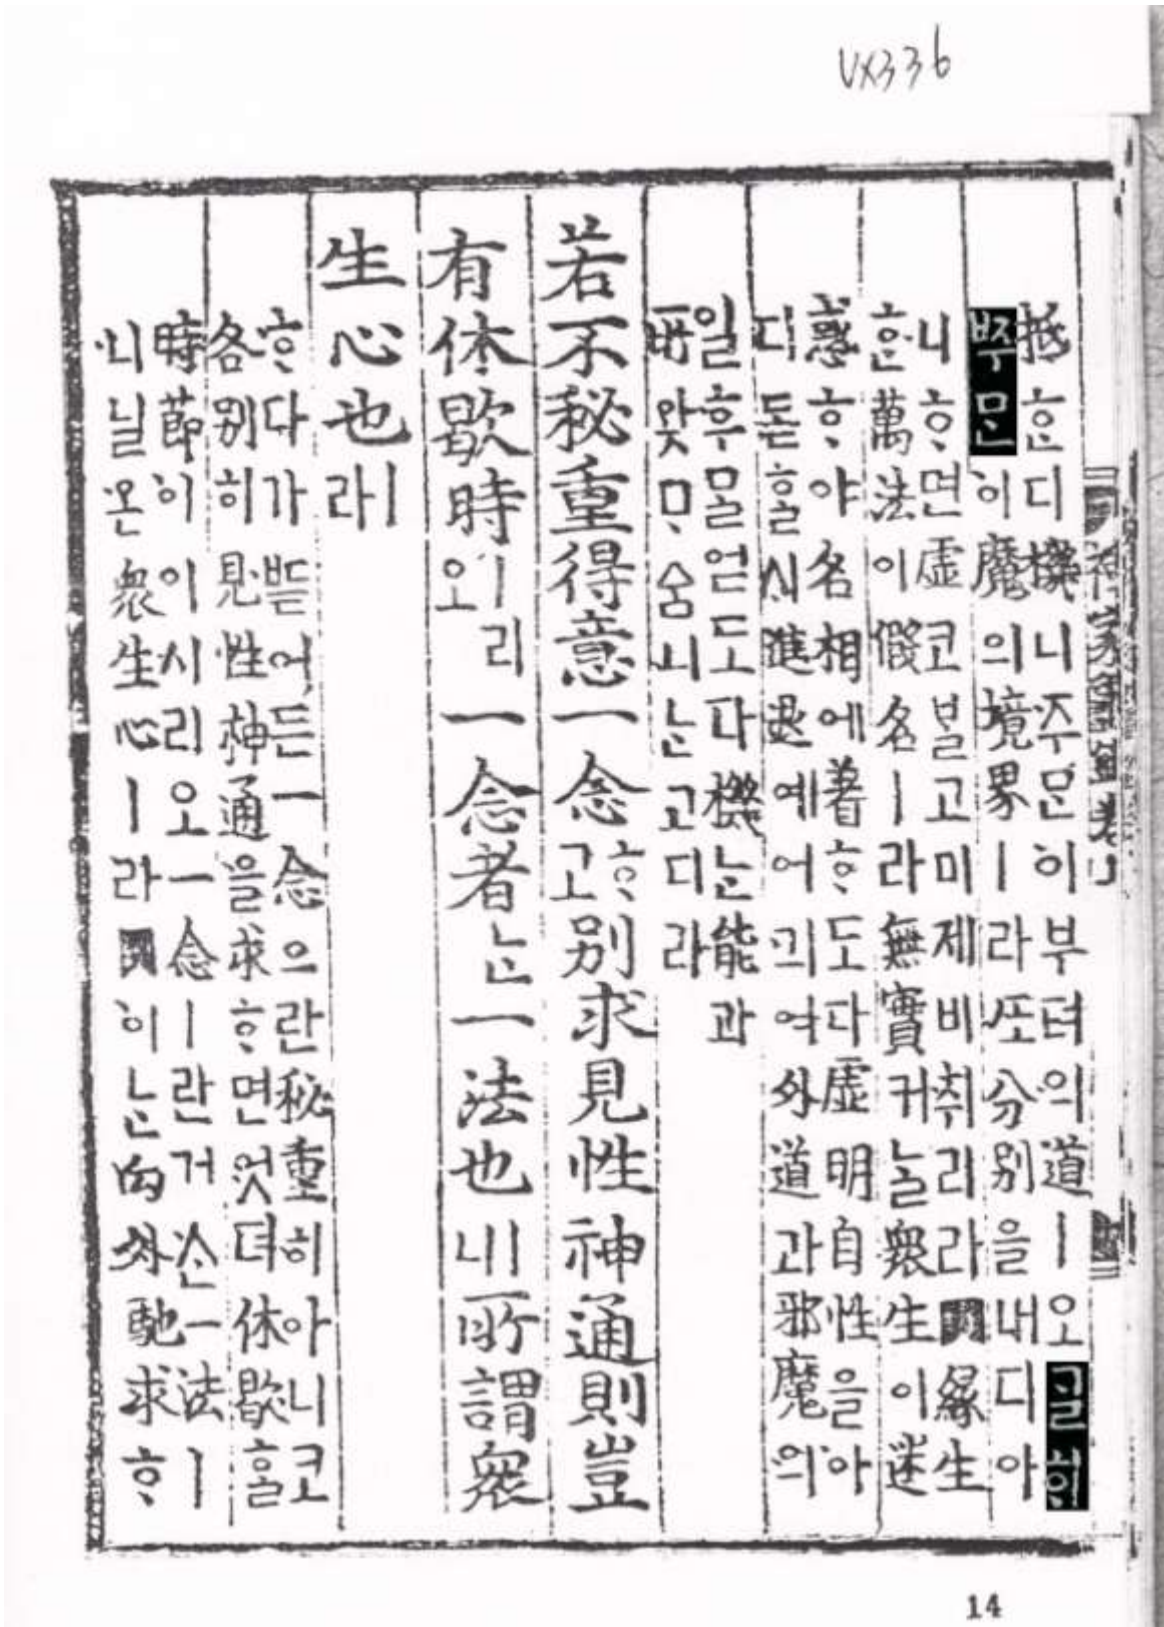 VX336
抵ᄒᆞᆫ디機니주ᄆᆞᆫ히부텨의道ㅣ오ᄀᆞᆯ히
ᄧᅮᄆᆞᆫ이魔의境界ㅣ라ᄯᅩ分別을내디아
니ᄒᆞ면虛코ᄇᆞᆯ고미제비취리라緣生
ᄒᆞᆫ萬法이假名ㅣ라無實커ᄂᆞᆯ衆生이迷
惑ᄒᆞ야名相에著ᄒᆞ도다虛明自性을아
디돋ᄒᆞᆯᄉᆡ進退예어긔여外道과邪魔의
일후믈얻도다機ᄂᆞᆫ能과
所왓ᄆᆞ숨니ᄂᆞᆫ고디라
若不秘重得意一念ᄒᆞ고別求見性神通則豈
有休歇時ㅣ리오一念者ᄂᆞᆫ一法也ㅣ니所謂衆
生心也ㅣ라
ᄒᆞ다가ᄠᅳᆮ어든一念으란秘重히아니코
各別히見性神通을求ᄒᆞ면엇뎌休歇ᄒᆞᆯ
時節이이시리오一念ㅣ란거슨一法ㅣ
니닐온衆生心ㅣ라이ᄂᆞᆫ向外馳求ᄒᆞ
14